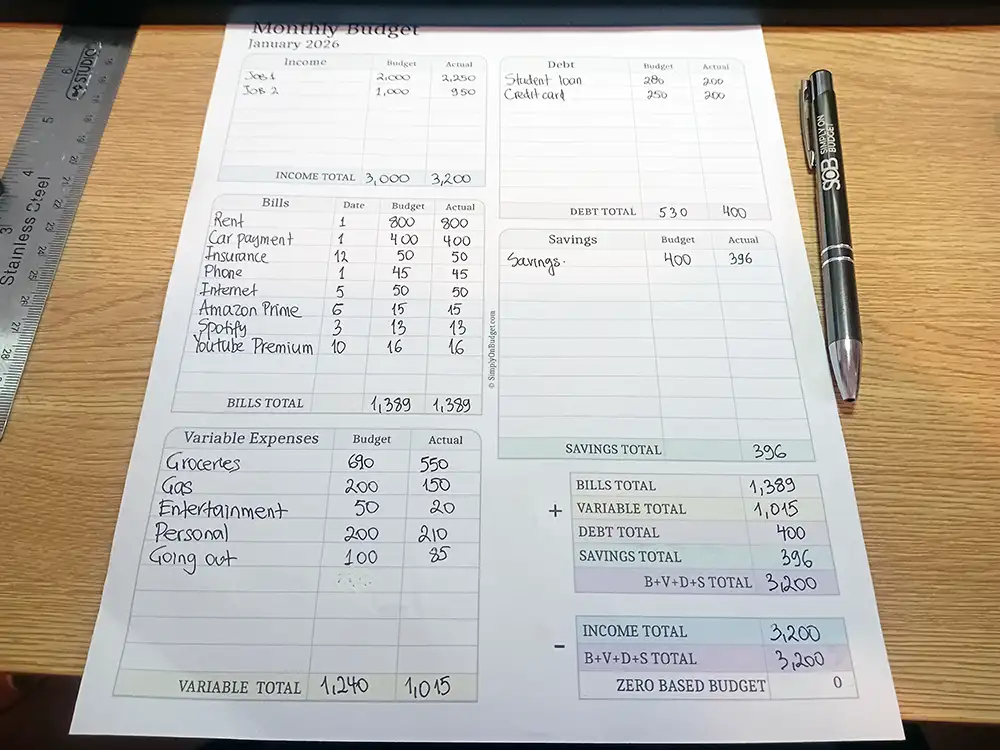 Monthly Budget
January 2026
Income Budget Actual
Job 1 2,000 2,250
Job 2 1,000 950
INCOME TOTAL 3,000 3,200
Debt Budget Actual
Student loan 280 200
Credit card 250 200
DEBT TOTAL 530 400
Bills Date Budget Actual
Rent 1 800 800
Car payment 1 400 400
Insurance 12 50 50
Phone 1 45 45
Internet 5 50 50
Amazon Prime 6 15 15
Spotify 3 13 13
Youtube Premium 10 16 16
BILLS TOTAL 1,389 1,389
Savings Budget Actual
Savings. 400 396
SAVINGS TOTAL 396
© SimplyOnBudget.com
Variable Expenses Budget Actual
Groceries 690 550
Gas 200 150
Entertainment 50 20
Personal 200 210
Going out 100 85
VARIABLE TOTAL 1,240 1,015
BILLS TOTAL 1,389
+ VARIABLE TOTAL 1,015
DEBT TOTAL 400
SAVINGS TOTAL 396
B+V+D+S TOTAL 3,200
INCOME TOTAL 3,200
- B+V+D+S TOTAL 3,200
ZERO BASED BUDGET 0
SOB SIMPLY ON
BUDGET
STUDIO
Stainless Steel
6
5
4
3
28
27